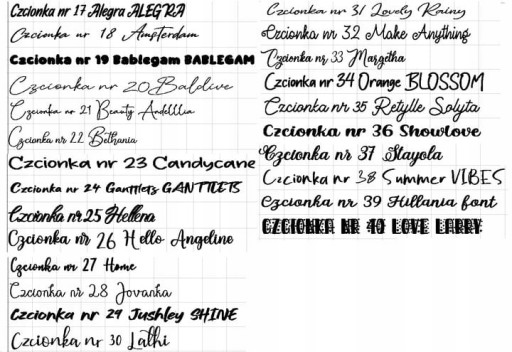 Czcionka nr 17 Alegra ALEGRA
Czcionka nr 18 Amsterdam
Czcionka nr 19 Bablegam BABLEGAM
Czcionka nr 20 Baldive
Czcionka nr 21 Beauty Andelllia
Czcionka nr 22 Bethania
Czcionka nr 23 Candycane
Czcionka nr 24 Ganttlets GANTTLETS
Czcionka nr 25 Hellena
Czcionka nr 26 Hello Angeline
Czcionka nr 27 Home
Czcionka nr 28 Jovanka
Czcionka nr 29 Jushley SHINE
Czcionka nr 30 Lathi
Czcionka nr 31 Lovely Rainy
Czcionka nr 32 Make Anything
Czcionka nr 33 Margetha
Czcionka nr 34 Orange BLOSSOM
Czcionka nr 35 Retylle Solyta
Czcionka nr 36 Showlove
Czcionka nr 37 Slayola
Czcionka nr 38 Summer VIBES
Czcionka nr 39 Hillania font
CZCIONKA NR 40 LOVE LARRY